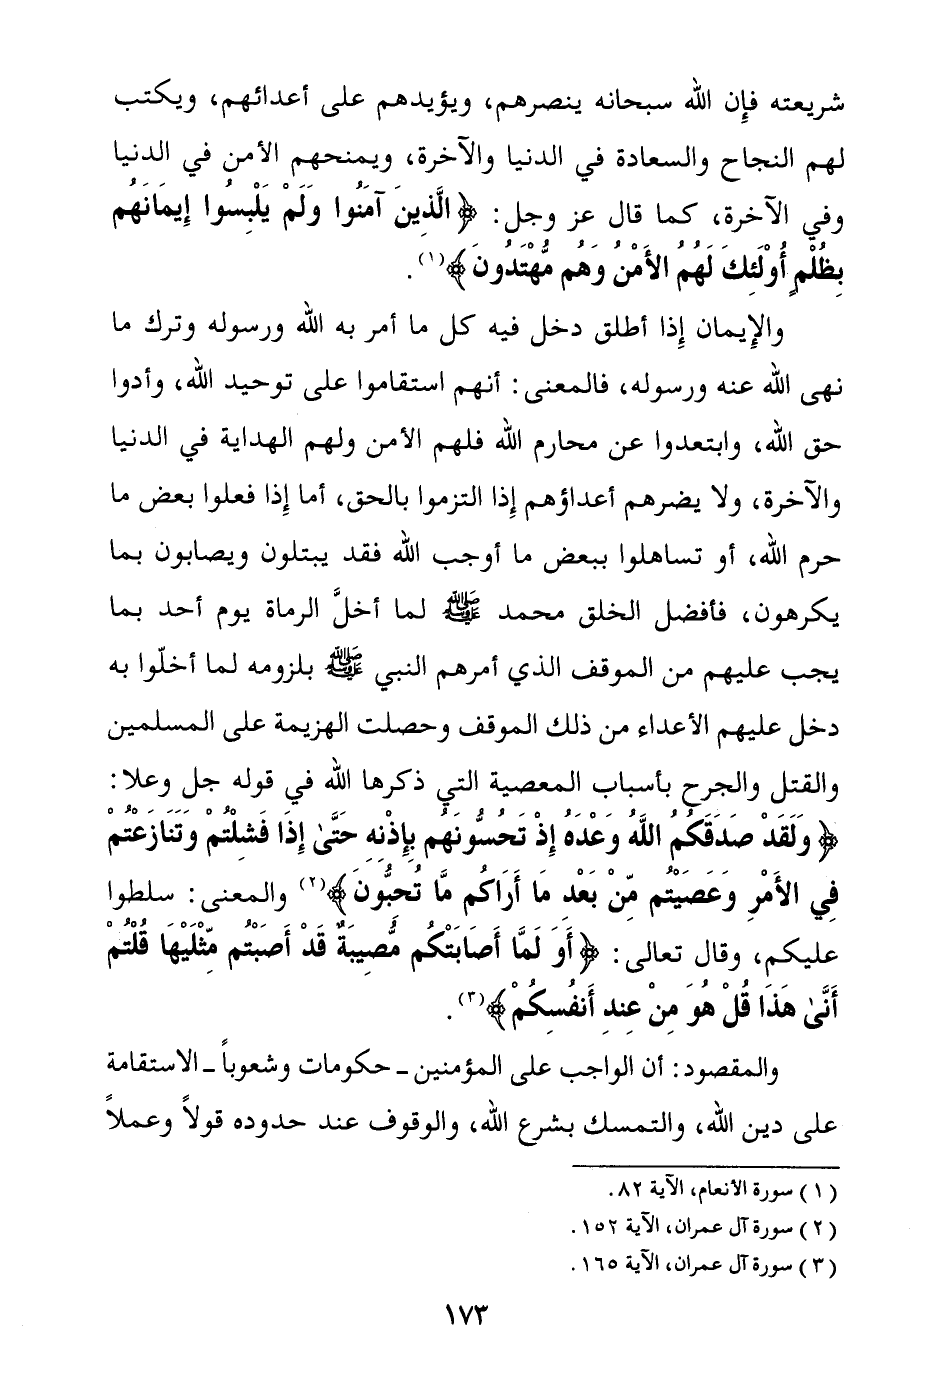 شريعته فإن الله سبحانه ينصرهم، ويؤيدهم على أعدائهم، ويكتب
لهم النجاح والسعادة في الدنيا والآخرة، ويمنحهم الأمن في الدنيا
وفي الآخرة، كما قال عز وجل: ﴿الَّذِينَ آمَنُوا وَلَمْ يَلْبِسُوا إِيمَانَهُم
بِظُلْمٍ أُوْلَئِكَ لَهُمُ الأَمْنُ وَهُم مُّهْتَدُونَ﴾(١).
والإيمان إذا أطلق دخل فيه كل ما أمر به الله ورسوله وترك ما
نهى الله عنه ورسوله، فالمعنى: أنهم استقاموا على توحيد الله، وأدوا
حق الله، وابتعدوا عن محارم الله فلهم الأمن ولهم الهداية في الدنيا
والآخرة، ولا يضرهم أعداؤهم إذا التزموا بالحق، أما إذا فعلوا بعض ما
حرم الله، أو تساهلوا ببعض ما أوجب الله فقد يبتلون ويصابون بما
يكرهون، فأفضل الخلق محمد ﷺ لما أخلَّ الرماة يوم أحد بما
يجب عليهم من الموقف الذي أمرهم النبي ﷺ بلزومه لما أخلّوا به
دخل عليهم الأعداء من ذلك الموقف وحصلت الهزيمة على المسلمين
والقتل والجرح بأسباب المعصية التي ذكرها الله في قوله جل وعلا:
﴿وَلَقَدْ صَدَقَكُمُ اللَّهُ وَعْدَهُ إِذْ تَحُسُّونَهُم بِإِذْنِهِ حَتَّىٰ إِذَا فَشِلْتُمْ وَتَنَازَعْتُمْ
فِي الأَمْرِ وَعَصَيْتُم مِّنْ بَعْدِ مَا أَرَاكُم مَّا تُحِبُّونَ﴾(٢) والمعنى: سلطوا
عليكم، وقال تعالى: ﴿أَوَ لَمَّا أَصَابَتْكُم مُّصِيبَةٌ قَدْ أَصَبْتُم مِّثْلَيْهَا قُلْتُمْ
أَنَّىٰ هَذَا قُلْ هُوَ مِنْ عِندِ أَنفُسِكُمْ﴾(٣).
والمقصود: أن الواجب على المؤمنين ـ حكومات وشعوباً ـ الاستقامة
على دين الله، والتمسك بشرع الله، والوقوف عند حدوده قولاً وعملاً
(١) سورة الأنعام، الآية ٨٢.
(٢) سورة آل عمران، الآية ١٥٢.
(٣) سورة آل عمران، الآية ١٦٥.
١٧٣